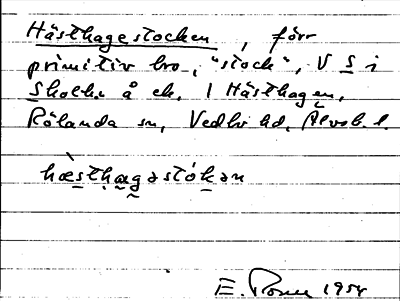 Hästhagestocken, förr
primitiv bro, "stock", V S i
Skolh. å ek, I Hästhagen,
Rölanda sn, Vedbo hd, Älvsb. l.
hæ̀sthagastókan
E. 1958